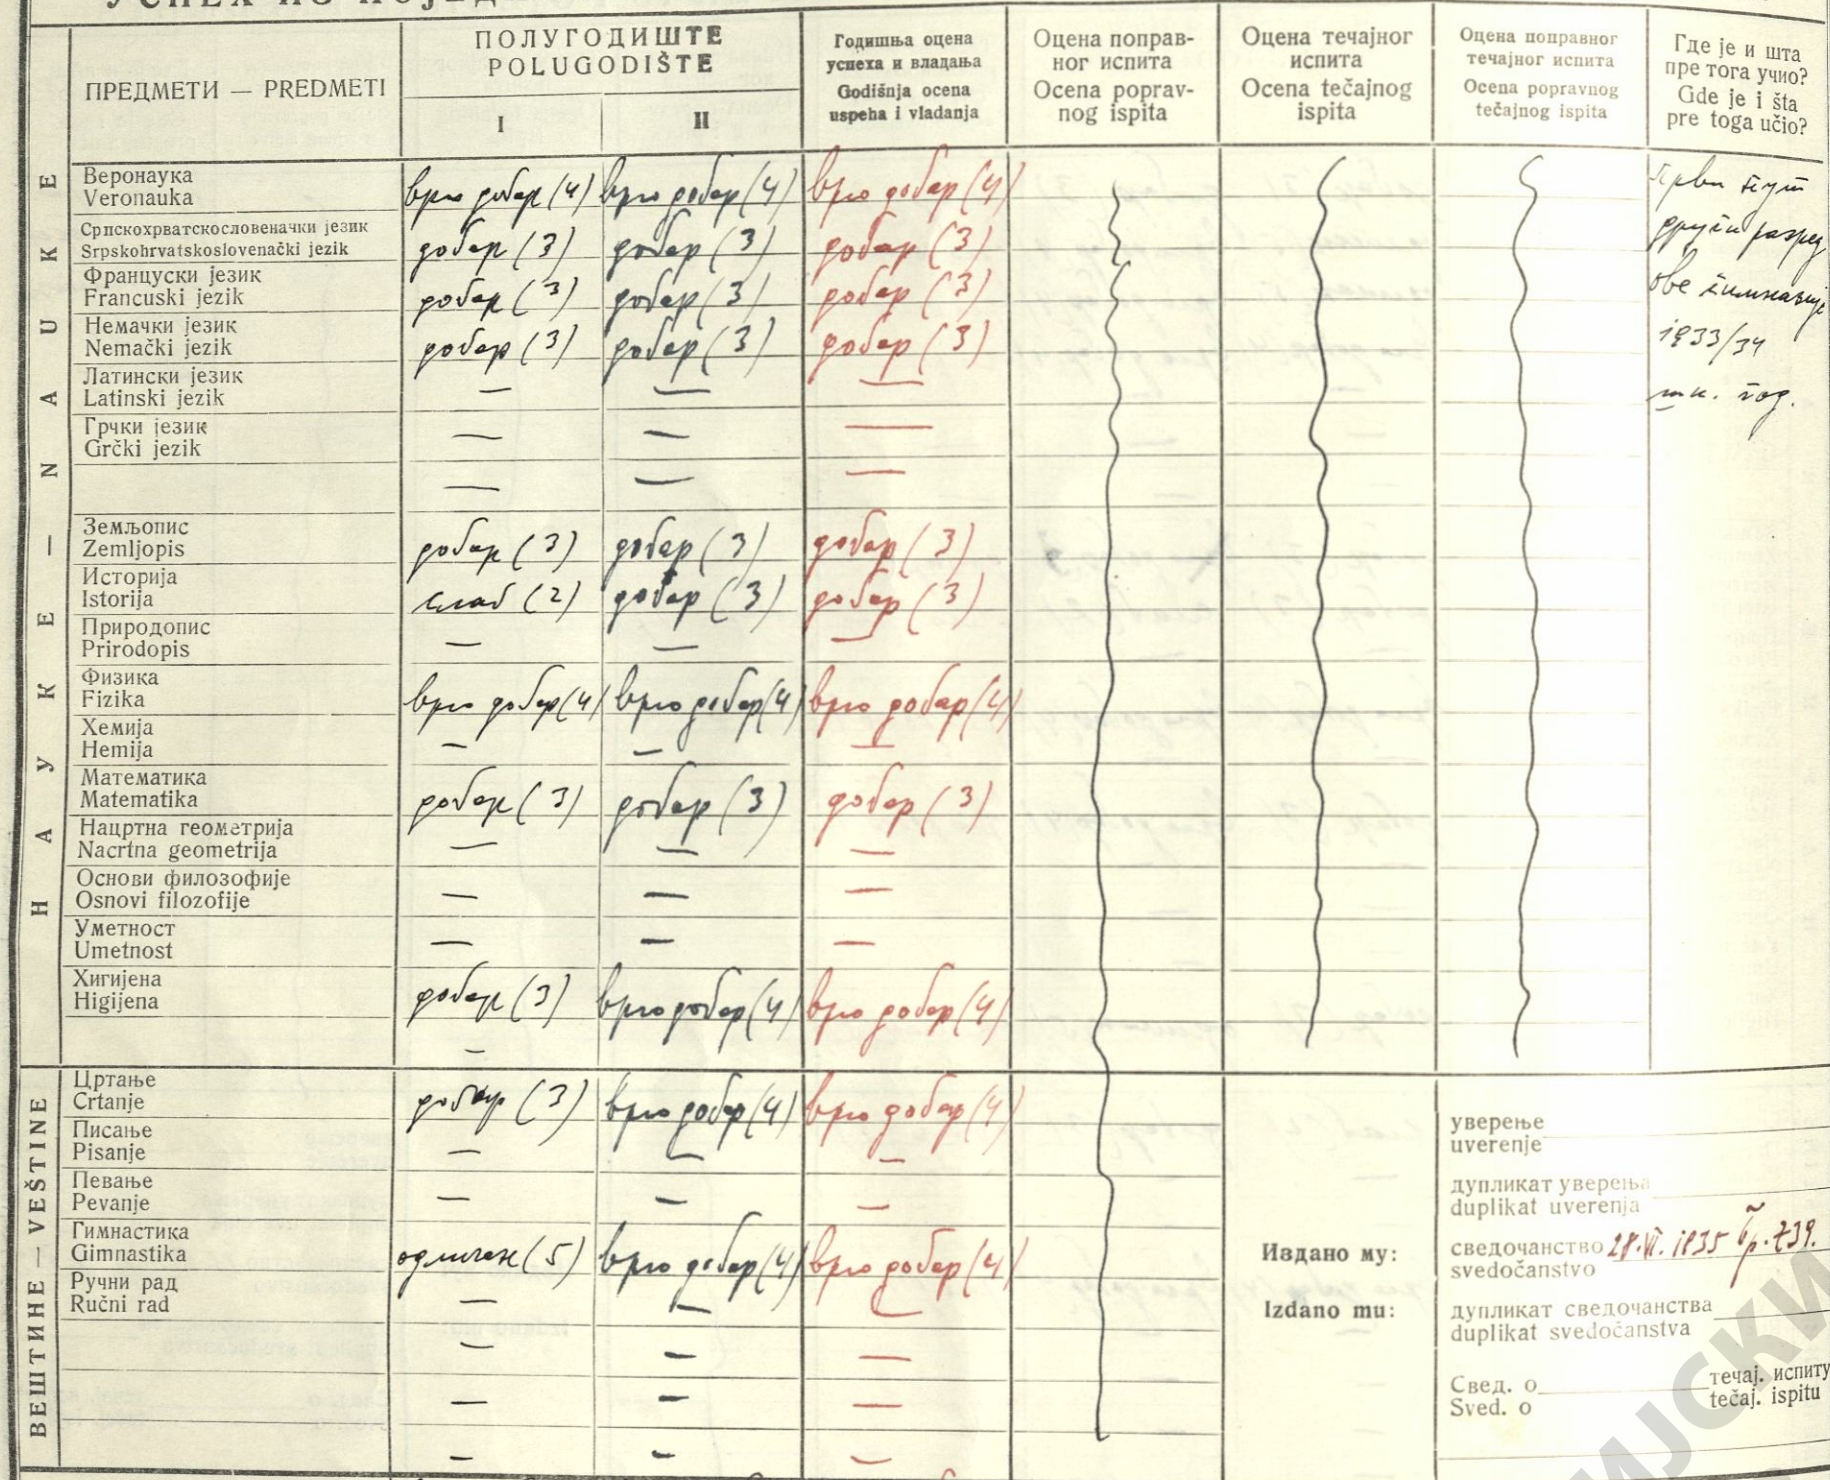 ПРЕДМЕТИ — PREDMETI
ПОЛУГОДИШТЕ
POLUGODIŠTE
I
II
Годишња оцена
успеха и владања
Godišnja ocena
uspeha i vladanja
Оцена поправ-
ног испита
Ocena poprav-
nog ispita
Оцена течајног
испита
Ocena tečajnog
ispita
Оцена поправног
течајног испита
Ocena popravnog
tečajnog ispita
Где је и шта
пре тога учио?
Gde je i šta
pre toga učio?
НАУКЕ — NAUKE
Веронаука
Veronauka
врло добар (4) врло добар (4) врло добар (4)
Српскохрватскословеначки језик
Srpskohrvatskoslovenački jezik
добар (3) добар (3) добар (3)
Француски језик
Francuski jezik
добар (3) добар (3) добар (3)
Немачки језик
Nemački jezik
добар (3) добар (3) добар (3)
Латински језик
Latinski jezik
— — —
Грчки језик
Grčki jezik
— — —
— — —
Земљопис
Zemljopis
добар (3) добар (3) добар (3)
Историја
Istorija
слаб (2) добар (3) добар (3)
Природопис
Prirodopis
— — —
Физика
Fizika
врло добар (4) врло добар (4) врло добар (4)
Хемија
Hemija
— — —
Математика
Matematika
добар (3) добар (3) добар (3)
Нацртна геометрија
Nacrtna geometrija
— — —
Основи филозофије
Osnovi filozofije
— — —
Уметност
Umetnost
— — —
Хигијена
Higijena
добар (3) врло добар (4) врло добар (4)
—
први пут
други разред
ове гимназије
1933/34
шк. год.
ВЕШТИНЕ — VEŠTINE
Цртање
Crtanje
добар (3) врло добар (4) врло добар (4)
Писање
Pisanje
— — —
Певање
Pevanje
— — —
Гимнастика
Gimnastika
одличан (5) врло добар (4) врло добар (4)
Ручни рад
Ručni rad
— — —
— — —
— — —
— — —
Издано му:
Izdano mu:
уверење
uverenje
дупликат уверења
duplikat uverenja
сведочанство 28.VI.1935 бр. 739.
svedočanstvo
дупликат сведочанства
duplikat svedočanstva
Свед. о течај. испиту
Sved. o tečaj. ispitu
ИЈСКИ